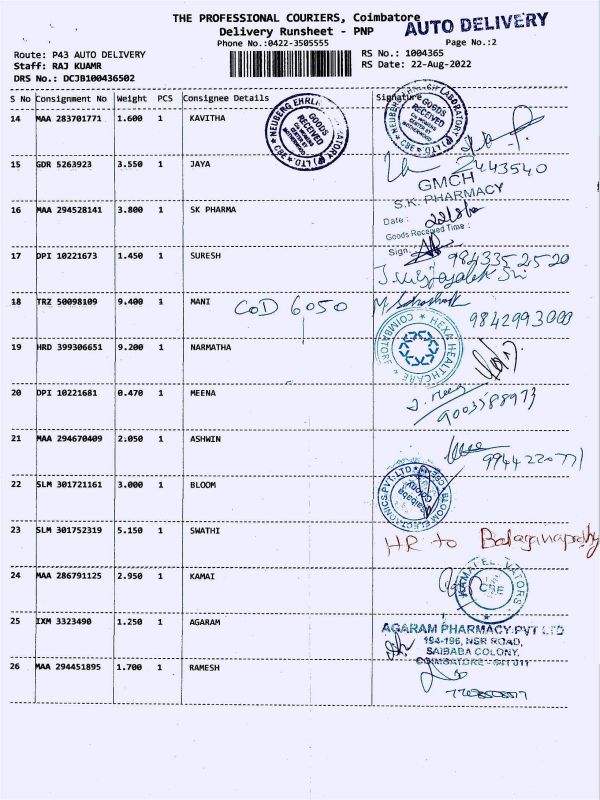 THE PROFESSIONAL COURIERS, Coimbatore
AUTO DELIVERY
Delivery Runsheet - PNP
Phone No.:0422-3505555
Page No.:2
Route: P43 AUTO DELIVERY
RS No.: 1004365
Staff: RAJ KUAMR
RS Date: 22-Aug-2022
DRS No.: DCJB100436502
S No Consignment No Weight PCS Consignee Details Signature
14 MAA 283701771 1.600 1 KAVITHA
GOODS RECEIVED
GOODS RECEIVED
15 GDR 5263923 3.550 1 JAYA
2443540
GMCH
S.K. PHARMACY
16 MAA 294528141 3.800 1 SK PHARMA
Date :
Goods Received Time :
Sign.
17 DPI 10221673 1.450 1 SURESH
9843352520
18 TRZ 50098109 9.400 1 MANI
COD 6050
9842993000
19 HRD 399306651 9.200 1 NARMATHA
HEXA HEALTHCARE * COIMBATORE *
20 DPI 10221681 0.470 1 MEENA
J. Meena
9003588973
21 MAA 294670409 2.050 1 ASHWIN
9944220771
22 SLM 301721161 3.000 1 BLOOM
BLOOM ELECTRONICS PVT. LTD
Saibaba Colony
23 SLM 301752319 5.150 1 SWATHI
HR to
24 MAA 286791125 2.950 1 KAMAI
CBE
25 IXM 3323490 1.250 1 AGARAM
AGARAM PHARMACY PVT LTD
194-196, NSR ROAD,
SAIBABA COLONY,
COIMBATORE - 641 011
26 MAA 294451895 1.700 1 RAMESH